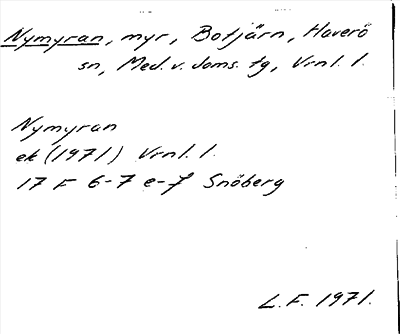 Nymyran, myr, Botjärn, Haverö
sn, Med. v. doms. tg, Vrnl. l.
Nymyran
ek (1971) Vrnl. l.
17 F 6-7 e-f Snöberg
L.F. 1971.